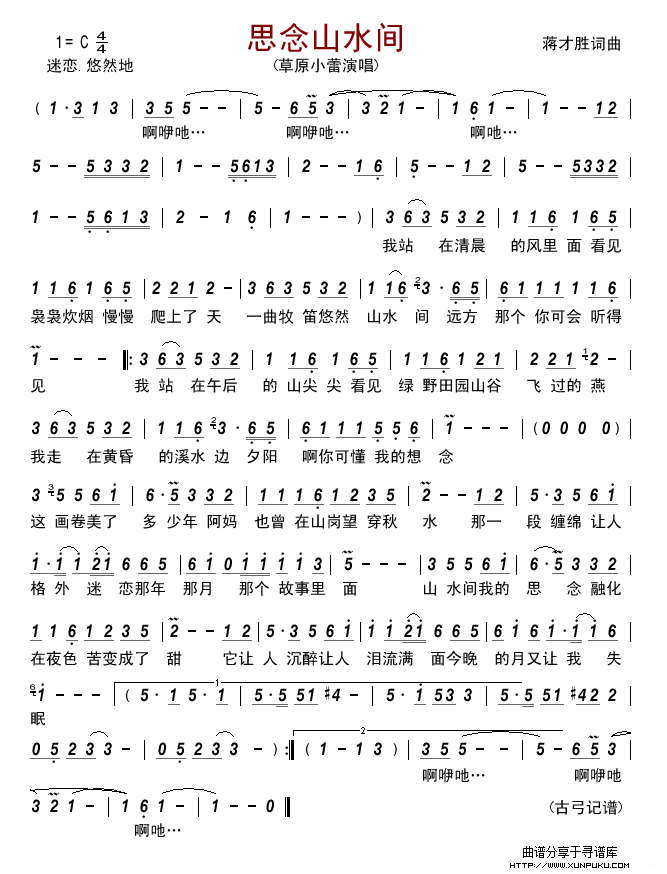 思念山水间
1= C 4/4
蒋才胜词曲
迷恋.悠然地
(草原小蕾演唱)
( 1· 3 1 3 | 3 5 5 - | 5 - 6 5 3 | 3 2 1 - | 1 6 1 - | 1 - - 1 2
啊咿吔… 啊咿吔… 啊吔…
5 - - 5 3 3 2 | 1 - - 5 6 1 3 | 2 - - 1 6 | 5 - - 1 2 | 5 - - 5 3 3 2
1 - - 5 6 1 3 | 2 - 1 6 | 1 - - - ) | 3 6 3 5 3 2 | 1 1 6 1 6 5
我站 在清晨 的风里 面 看见
1 1 6 1 6 5 | 2 2 1 2 - | 3 6 3 5 3 2 | 1 1 6 2 3 · 6 5 | 6 1 1 1 5 5 6
袅袅炊烟 慢慢 爬上了 天 一曲牧 笛悠然 山水 间 远方 那个 你可会 听得
1 - - - |: 3 6 3 5 3 2 | 1 1 6 1 6 5 | 1 1 6 1 2 1 | 2 2 1 1 2 -
见 我 站 在午后 的 山尖 尖 看见 绿 野田园山谷 飞 过的 燕
3 6 3 5 3 2 | 1 1 6 2 3 · 6 5 | 6 1 1 1 5 5 6 | 1 - - - | (0 0 0 0)
我走 在黄昏 的溪水 边 夕阳 啊你可懂 我的想 念
3 3 5 5 6 1 | 6· 5 3 3 2 | 1 1 1 6 1 2 3 5 | 2 - - 1 2 | 5· 3 5 6 1
这 画卷美了 多 少年 阿妈 也曾 在山岗望 穿秋 水 那一 段 缠绵 让人
1· 1 1 2 1 6 6 5 | 6 1 0 1 1 1 1 3 | 5 - - - | 3 5 5 6 1 | 6· 3 5 5
格 外 迷 恋那年 那月 那个 故事里 面 山 水间我的 思 念 融化
1 1 6 1 2 3 5 | 2 - - 1 2 | 5· 3 5 6 1 | 1 1 2 1 6 6 5 | 6 1 1· 1 1 6
在夜色 苦变成了 甜 它让 人 沉醉让人 泪流满 面今晚 的月又让 我 失
6 1 - - - | ( 5· 1 5· 1 | 5· 5 5 1 #4 - | 5· 1 5 3 3 | 5· 5 5 1 #4 2 2
1
眠
0 5 2 3 3 - | 0 5 2 3 3 - ) :| ( 1 - 1 3 | 3 5 5 - | 5 - 6 5 3
2
啊咿吔… 啊咿吔
3 2 1 - | 1 6 1 - | 1 - - 0 ||
啊吔…
(古弓记谱)
曲谱分享于寻谱库
HTTP://WWW.XUNPUKU.COM